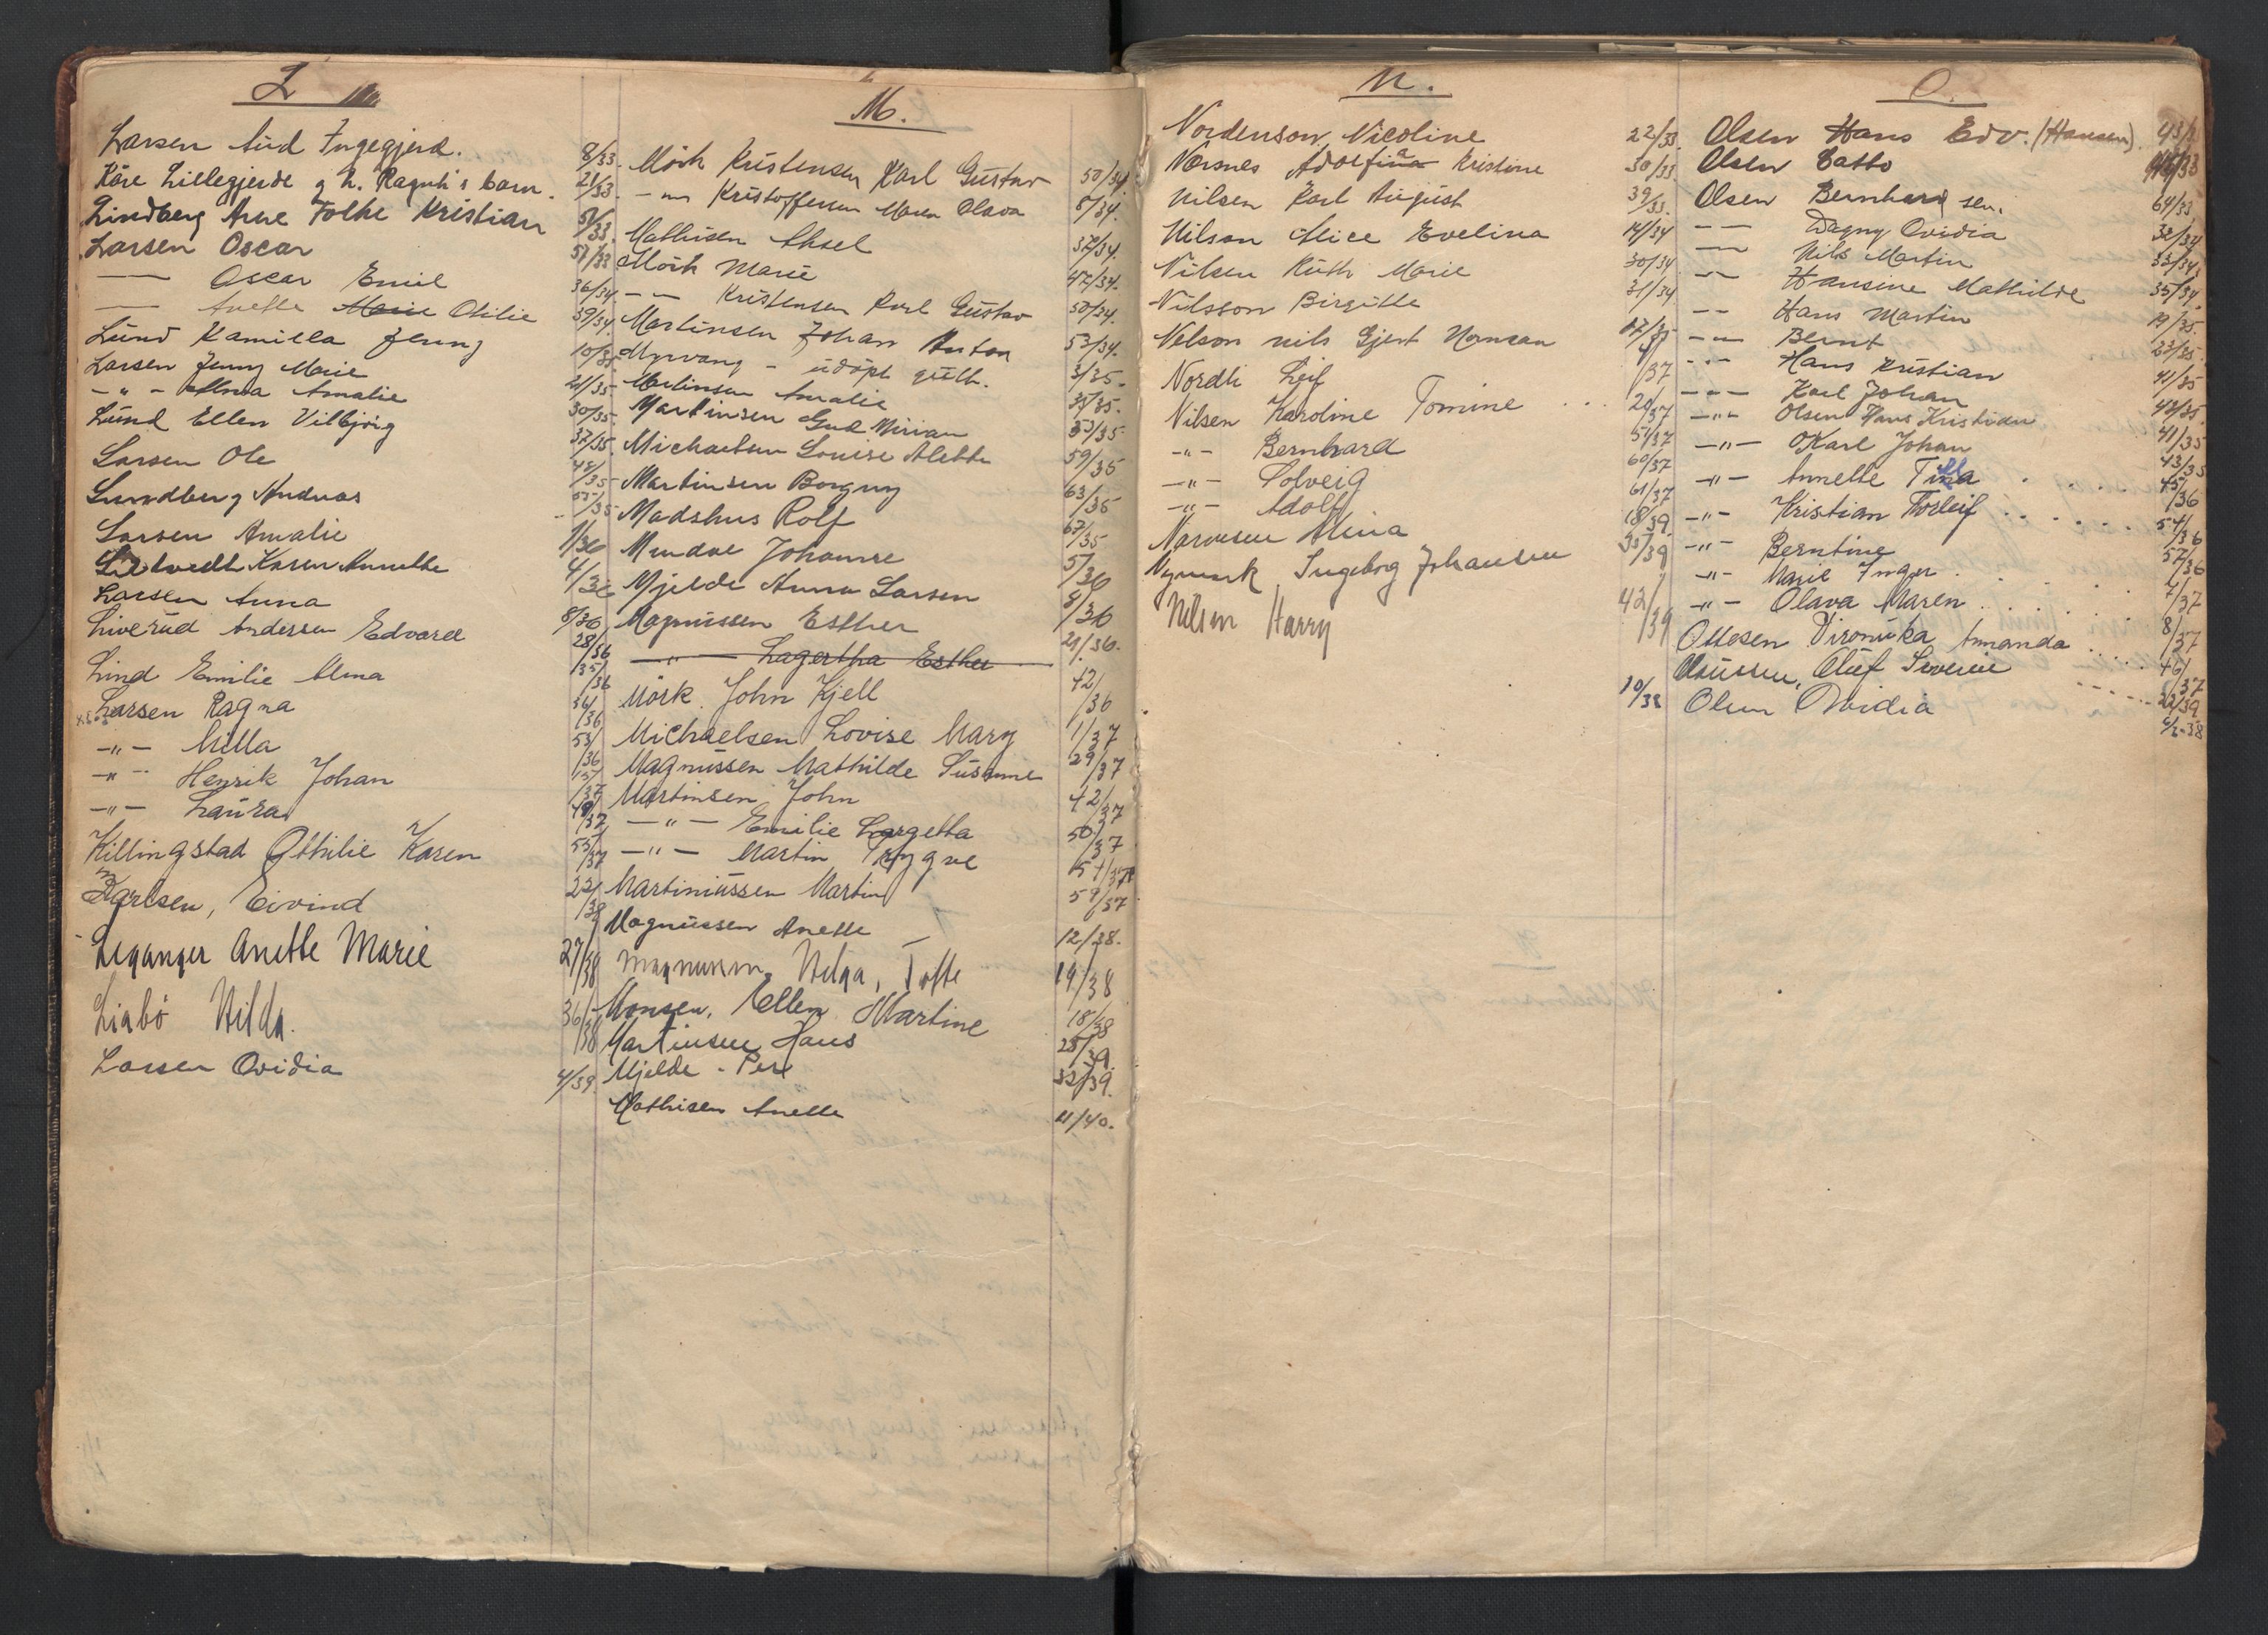 L
Larsen Aud Ingegjerd. 8/33.
Kåre Lillegjerde g. h. Ragnh's barn. 21/33.
Lindberg Arne Folke Kristian 51/33.
Larsen Oscar 57/33
—— Oscar Emil 36/34.
—— Anette Marie Otilie 39/34.
Lund Kamilla Jenny 10/35.
Larsen Jenny Marie 21/35.
-"- Alma Amalie 30/35.
Lund Ellen Vilbjörg 37/35.
Larsen Ole 48/35
Lundberg Andreas 55/35
Larsen Amalie 1/36
Karen Annette 4/36
Larsen Anna
Liverud Andersen Edvard 8/36
Lind Emilie Alma 28/36
Larsen Ragna 35/36
-"- Milla
-"- Henrik Johan
-"- Laura
Killingstad Othilie Karen
Karlsen, Eivind 22/38
Leganger Anette Marie 27/38
Liabö Hilda. 36/38
Larsen Ovidia 4/39.
M.
Mörk Kristensen Karl Gustav 50/34.
-"- Kristoffersen Maren Olava 8/34.
Mathisen Aksel 37/34.
Mörk Marie 47/34.
-"- Kristensen Karl Gustav 50/34.
Martinsen Johan Anton 53/34.
Myrvang - udöpt gutt. 3/35.
Martinsen Amalie 31/35.
Martinsen Gud. Mirian 53/35
Michaelsen Louise Alette 59/35
Martinsen Borgny 63/35
Madshus Rolf 67/35
Johanne 5/36
Mjelde Anna Larsen 8/36
Magnussen Esther 21/36.
—"— Lagertha Esther
Mörk. John Kjell 42/36
Michaelsen Lovise Mary 1/37
Magnussen Mathilde Susanne 29/37
Martinsen John 42/37
—"— Emilie Largetta 50/37
—"— Martin Trygve 51/37
Martiniussen Martin 59/37
Magnussen Anette 12/38.
Magnussen, Helga, Tofte 14/38
Monsen, Ellen Martine 18/38
Martinsen Hans 25/39.
Mjelde - Per 32/39.
Mathisen Anette 11/40.
N.
Nordenson, Nicoline 22/33.
Nærsnes Adolfina Kristine 30/33.
Nilsen Karl August 39/33.
Nilsen Alice Evelina 14/34
Nilsen Ruth Marie 30/34
Nilsson Birgitte 31/34
Nelson Nils Gjert
Nordli Leif 1/37
Nilsen Karoline Tomine ... 20/37
-"- Bernhard 51/37
-"- Solveig 60/37
-"- Adolf 61/37
Narvesen Alina 18/39.
Nymark Ingeborg Johansen 35/39
Nilsen Harry 42/39
O.
Olsen Hans Edv. (Hansen).
Olsen
Olsen Bernhard sen. 64/33
—— Dagny Ovidia 32/34
—— Nils Martin 33/34.
—— Hansine Mathilde 35/34.
—— Hans Martin 19/35.
—"— Bernt 23/35.
—"— Hans Kristian 41/35
—"— Karl Johan 43/35.
—"— Olsen Hans Kristian 41/35
—"— Karl Johan 43/35
—"— Annette 45/36
—"— Kristian Thorleif 54/36
—"— Berntine 57/36
—"— Marie Inger 7/37
—"— Olava Maren 8/37
Ottesen Vironika Amanda 46/37
Oluf Severin 22/39
10/38 Olsen Ovidia 6/2-38